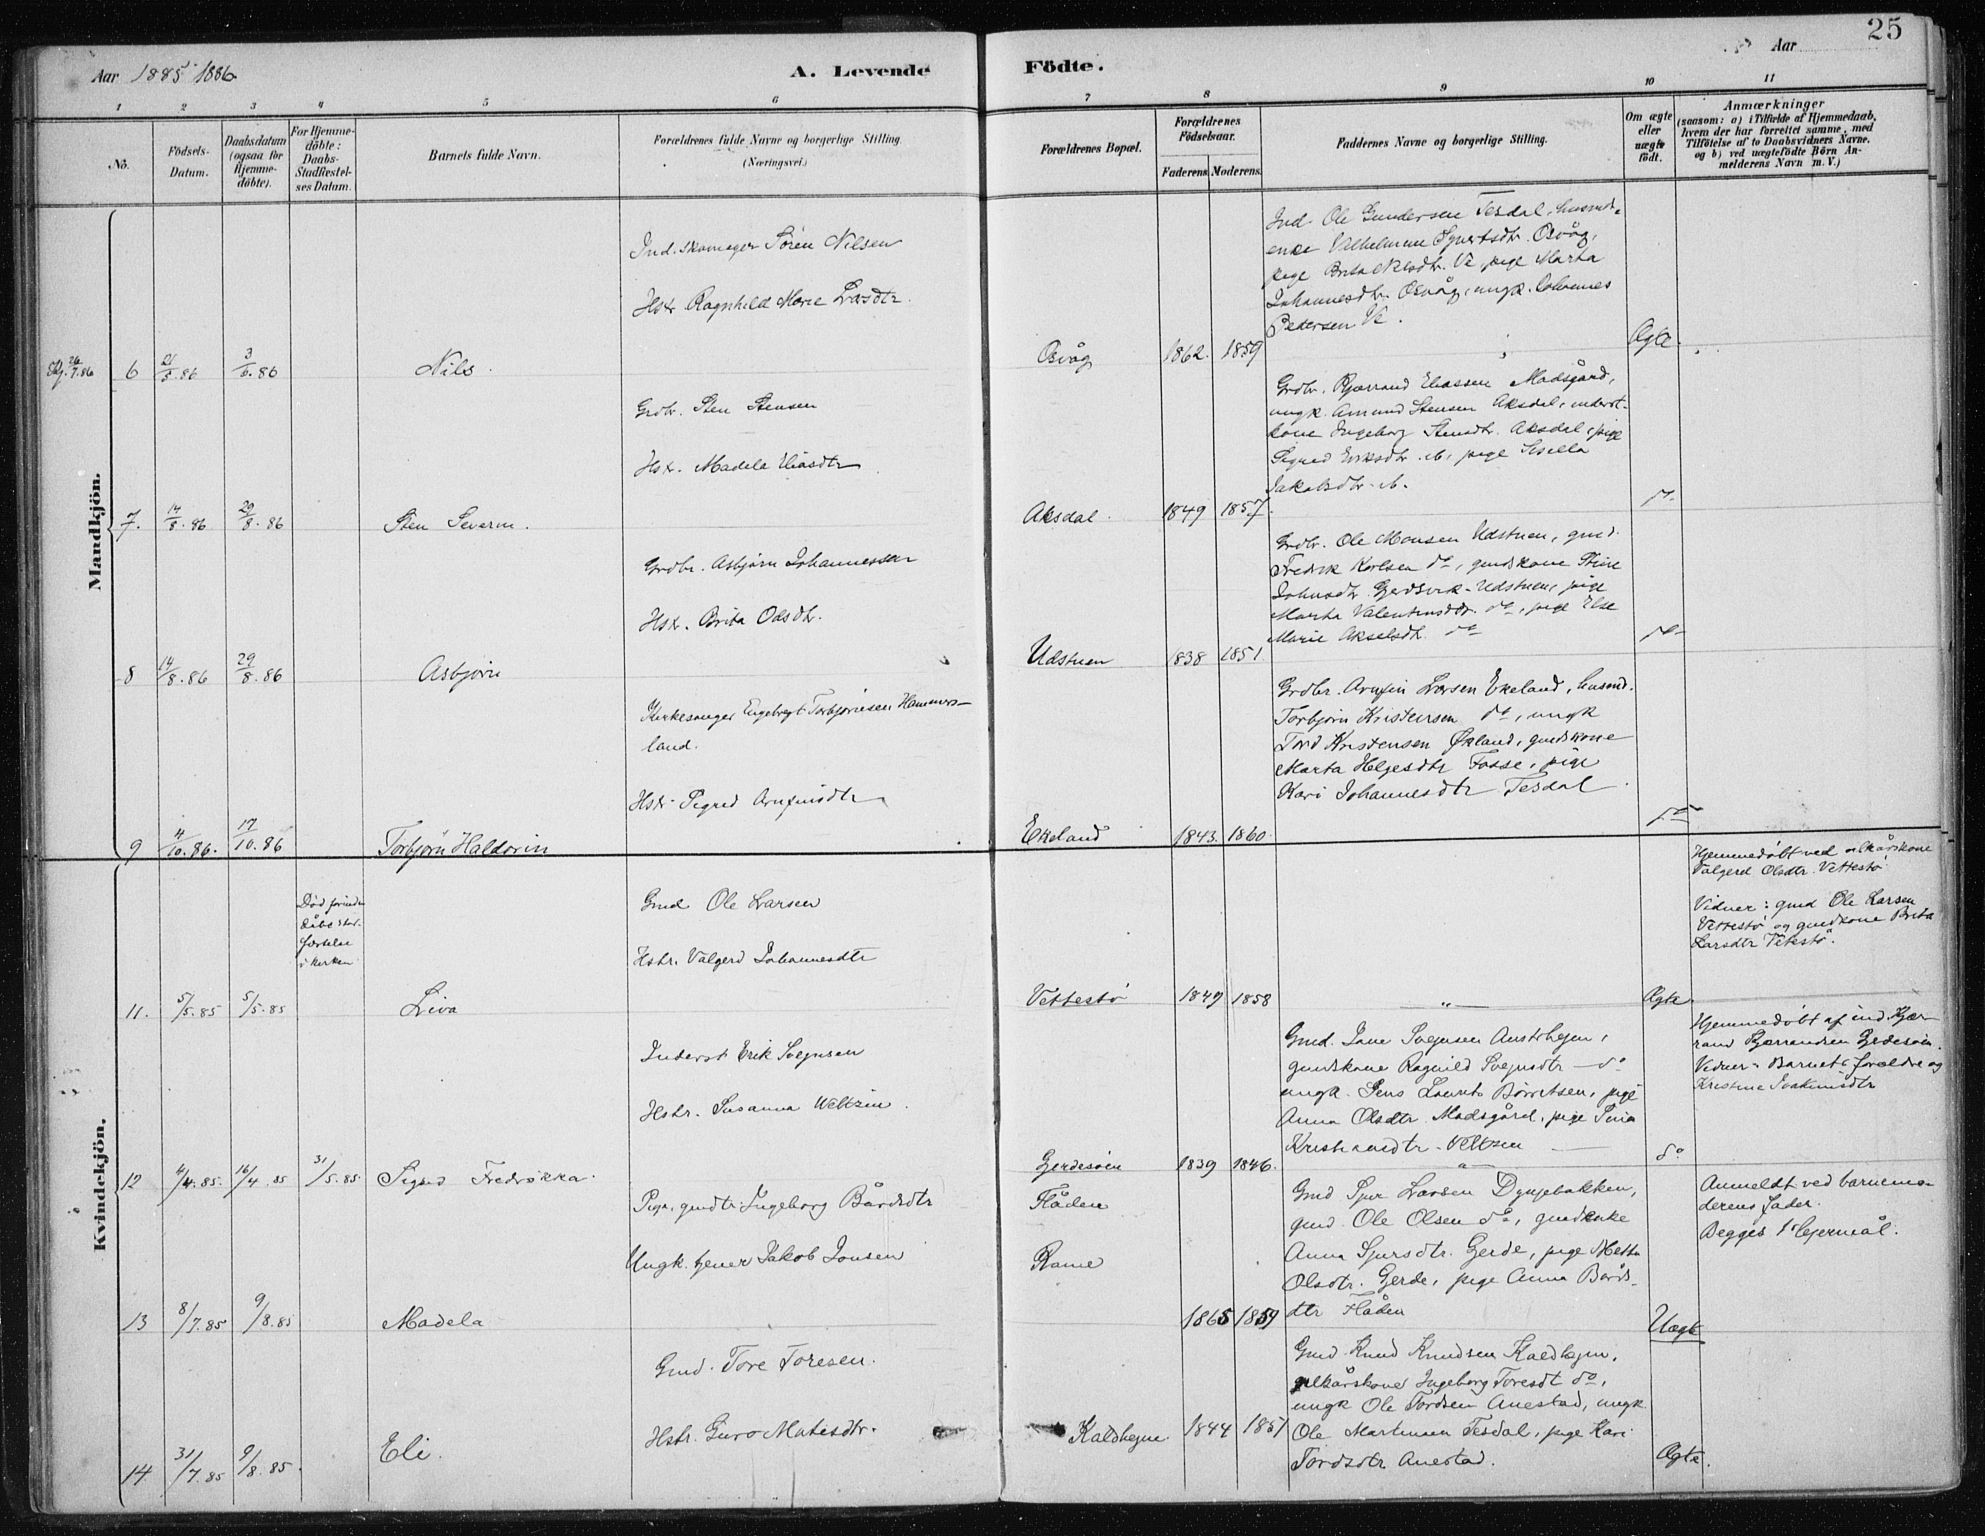 25
Aar 1885 1886
A. Levende
Födte.
Aar
1 2 3 4 5 6 7 8 9 10 11
Nö.
Födsels-
Datum.
Daabsdatum
(ogsaa for
Hjemme-
döbte).
For Hjemme-
döbte:
Daabs-
Stadfæstel-
ses Datum.
Barnets fulde Navn.
Forældrenes fulde Navne og borgerlige Stilling
(Næringsvei.)
Forældrenes Bopæl.
Forældrenes
Födselsaar.
Faderens. Moderens.
Faddernes Navne og borgerlige Stilling.
Om ægte
eller
uægte
födt.
Anmærkninger
(saasom: a) i Tilfælde af Hjemmedaab,
hvem der har forrettet samme, med
Tilföielse af to Daabsvidners Navne,
og b) ved uægtefödte Börn An-
melderens Navn m. V.)
Mandkjön.
6
21/5.86
3/6.86
Nils.
Ind. skomager Sören Nilsen
Hstr Ragnhild Marie Larsdtr.
Osvåg
1862. 1859
Ind. Ole Gundersen Tesdal, husmds
enke Vilhelmine Osvåg,
pige Ve, pige Marta
Johannesdtr. Osvåg, ungk. Johannes
Pedersen Ve.
Ægte.
7.
14/8.86
29/8.86
Sten Severin.
Grdbr. Sten Stensen
Hstr. Madela Eliasdtr
Aksdal.
1849 1857.
Grdbr. Bjærrand Eliassen Madsgård,
ungk. Amund Stensen Aksdal, inderst-
kone Ingeborg Stensdtr. Aksdal, pige
Sigrid Eriksdtr. ib, pige Sisella
Jakobsdtr. ib.
do
8
14/8.86
29/8.86
Asbjörn
Grdbr. Asbjörn Johannessen
Hstr. Brita Olsdtr.
Udstuen
1838 1851.
Grdbr. Ole Monsen Udstuen, gmd.
Fredrik Karlsen do, gmdskone Stine
Johnsdtr Gjerdsvik-Udstuen, pige
Marta Valentinsdtr. do, pige Else
Marie Akselsdtr. do
do
9
4/10.86.
17/10.86
Torbjörn Haldorin
Kirkesanger Engebregt Torbjörnsen Hammers-
land.
Hstr. Sigrid Arnfinsdtr
Ekeland
1843. 1860.
Grdbr. Arnfin Larsen Ekeland, husmd.
Torbjörn Kristensen do, ungk
Tord Kristensen Økland, gmdskone
Marta Helgesdtr Fosse, pige
Kari Johannesdtr Tesdal.
do
Kvindekjön.
11.
5/5.85
5/5.85
Död forinden
dåbsstad-
fæstelse
i kirken
Liva
Gmd Ole Larsen
Hstr. Valgerd Johannesdtr
Vettestö
1849 1858
Ægte.
Hjemmedöbt ved alkårskone
Valgerd Olsdtr. Vettestö
Vidner: gmd Ole Larsen
Vettestö og gmdkone Brita
Larsdtr Vetestö.
12
4/4.85.
16/4.85
31/5.85
Sigrid Fredrikka.
Inderst Erik Svejnsen
Hstr. Susanna Weltzin.
Gerdesöen
1839 1846.
Gmd. Svejnsen Austrhejm,
gmdskone Ragnild Svejnsdtr do
ungk. Jens Lauritz Börretsen, pige
Anna Olsdtr. Madsgård, pige
Kristiansdtr. Veltzen
do
Hjemmedöbt af ind. Kjær-
rand Bjærrandsen Gerdesöen.
Vidner: Barnets forældre og
Kristine Joakimsdtr
13
8/7.85
9/8.85
Madela
Pige, gmdtr Ingeborg Bårdsdtr
Ungk. tjener Jakob Jonsen
Flåden
Rame
1865 1859
Gmd Sjur Larsen Dynjebakken,
gmd. Ole Olsen do, gmdenke
Anna Sjursdtr. Gerde, pige Metta
Olsdtr. Gerde, pige Anna Bårds-
dtr Flåden
Uægte
Anmeldt ved barnemo-
derens fader.
Begges 1ste lejermål.
14
31/7.85
9/8.85
Eli.
Gmd. Tore Toresen.
Hstr. Guro Matisdtr.
Kaldhejm
1844 1851
Gmd Knud Knudsen Kaldhejm,
alkårskone Ingeborg Toresdt do,
ungk Ole Tordsen Anestad, ungk
Ole Martinsen Tesdal, pige Kari
Tordsdtr Anestad.
Ægte.